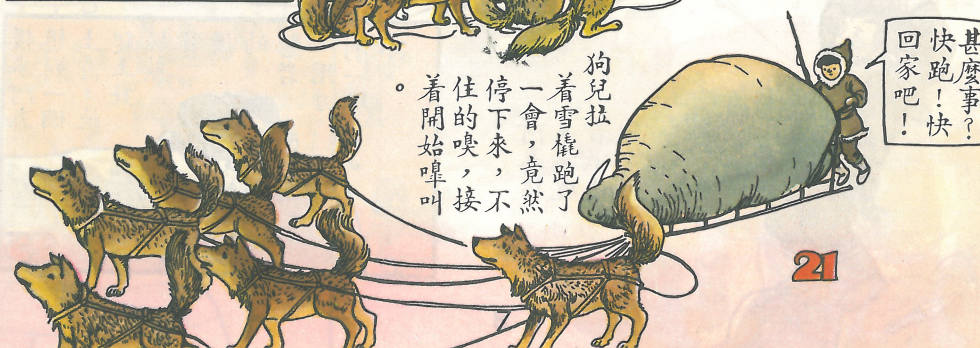 甚麼事？
快跑！快
回家吧！
狗兒拉
着雪橇跑了
一會，竟然
停下來，不
住的嗅，接
着開始嘷叫
。
21